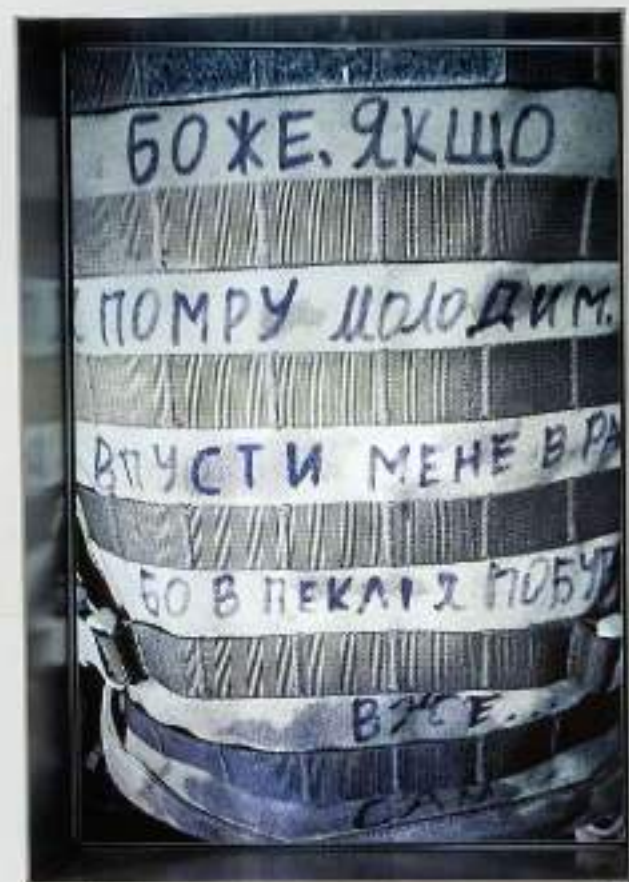 БОЖЕ. ЯКЩО
ПОМРУ МОЛОДИМ.
ВПУСТИ МЕНЕ В
БО В ПЕКЛІ Я
ВЖЕ...